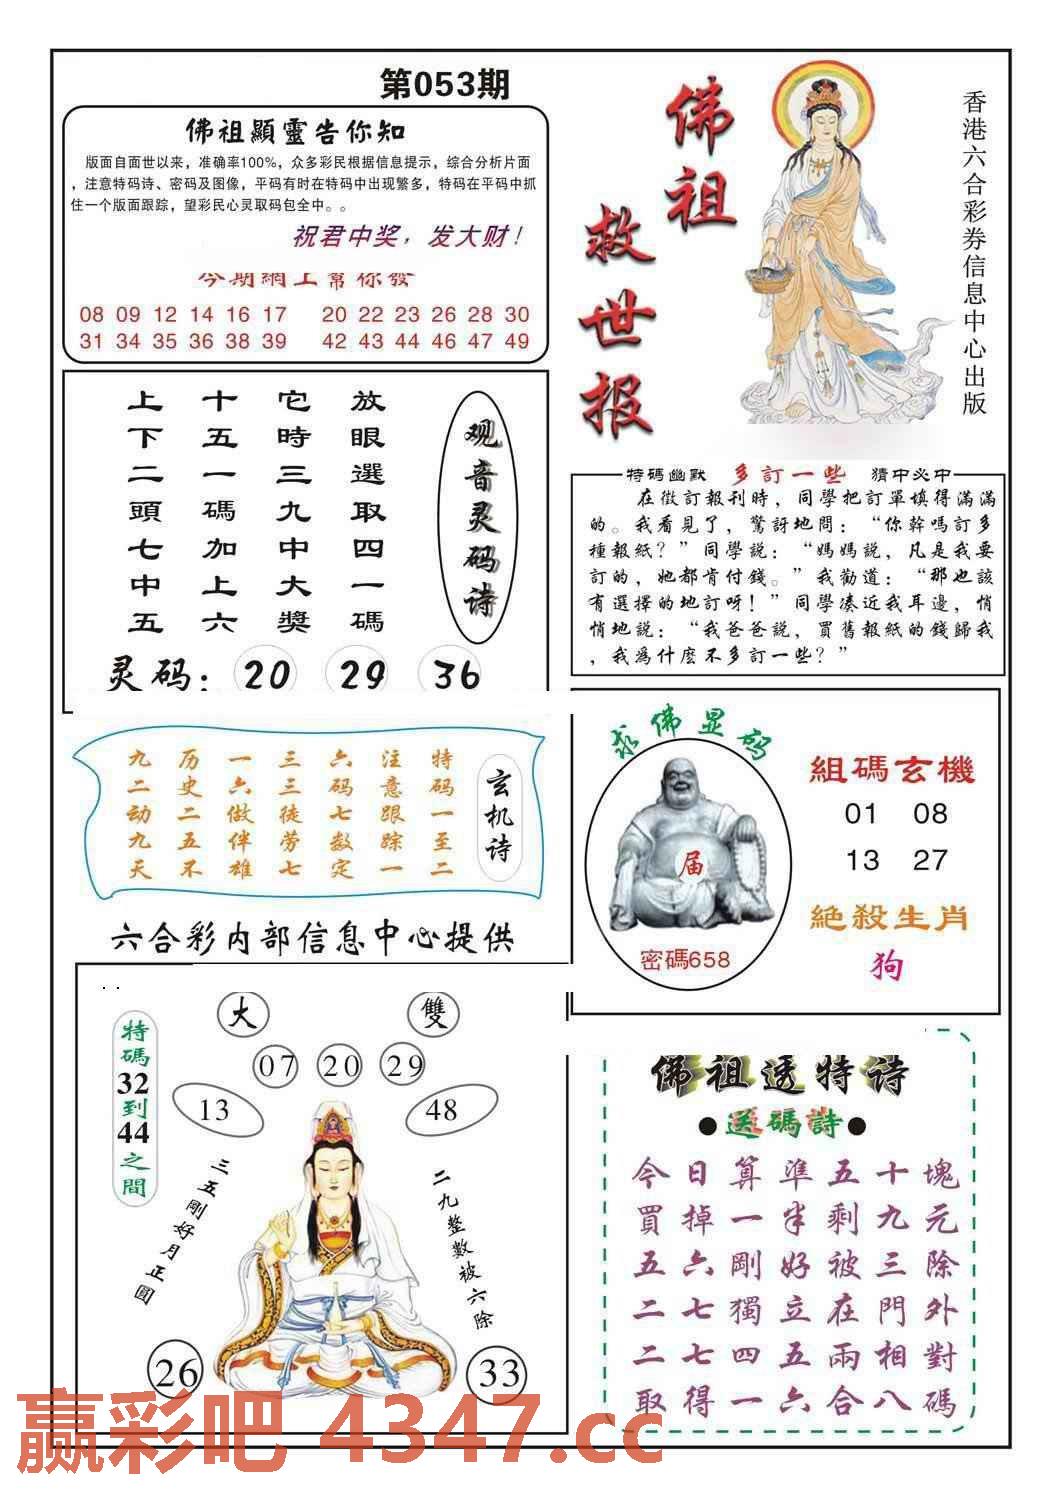 第053期
佛祖顯靈告你知
版面自面世以来，准确率100%，众多彩民根据信息提示，综合分析片面
，注意特码诗、密码及图像，平码有时在特码中出现繁多，特码在平码中抓
住一个版面跟踪，望彩民心灵取码包全中。。
祝君中奖，发大财！
今期網上幫你發
08 09 12 14 16 17 20 22 23 26 28 30
31 34 35 36 38 39 42 43 44 46 47 49
佛祖
救世报
香港六合彩券信息中心出版
观音灵码诗
放眼選取四一碼
它時三九中大獎
十五一碼加上六
上下二頭七中五
灵码：20 29 36
特碼幽默 多訂一些 猜中必中
在徵訂報刊時，同學把訂單填得滿滿
的。我看見了，驚訝地問：“你幹嗎訂多
種報紙？”同學説：“媽媽説，凡是我要
訂的，她都肯付錢。”我勸道：“那也該
有選擇的地訂呀！”同學湊近我耳邊，悄
悄地説：“我爸爸説，買舊報紙的錢歸我
，我為什麽不多訂一些？”
玄机诗
特码一至二
注意跟踪一
六码七数定
三三徒劳七
一六做伴雄
历史二五不
九二动九天
六合彩内部信息中心提供
求佛显码
届
密碼658
組碼玄機
01 08
13 27
絶殺生肖
狗
大 雙
07 20 29
13 48
特碼32到44之間
三五剛好月正圓
二九整數被六除
26 33
佛祖透特诗
●送碼詩●
今日算準五十塊
買掉一半剩九元
五六剛好被三除
二七獨立在門外
二七四五兩相對
取得一六合八碼
赢彩吧 4347.cc